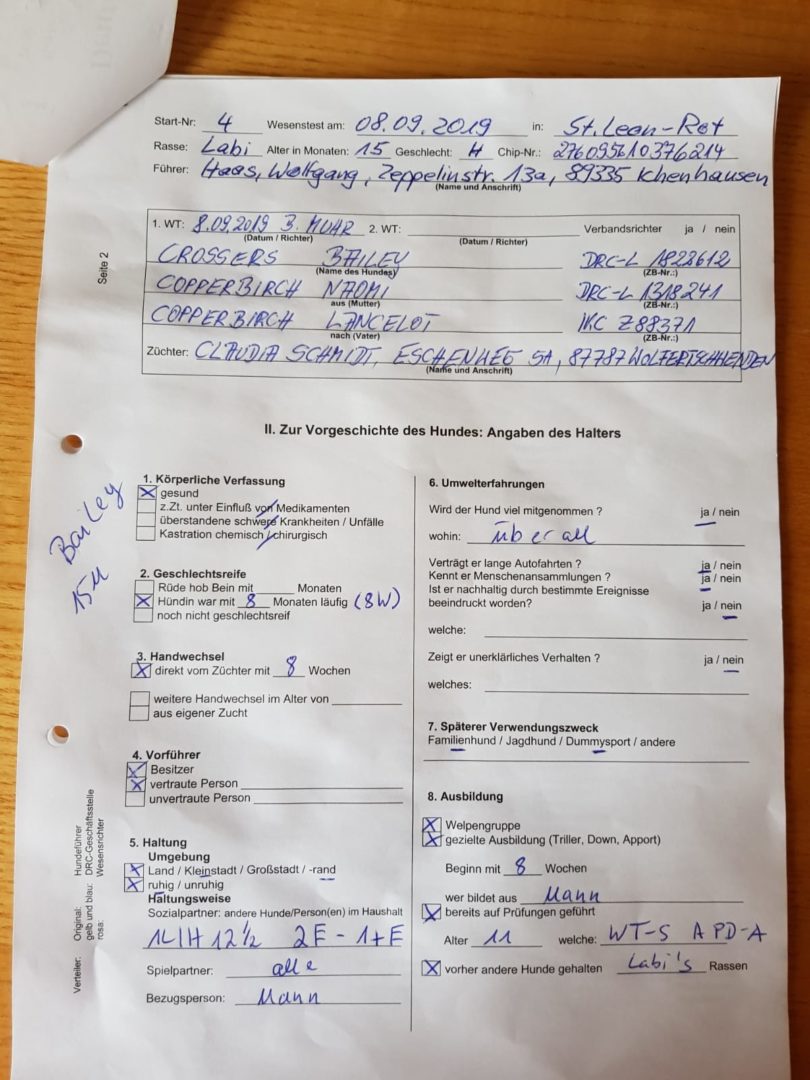 Start-Nr: 4 Wesenstest am: 08.09.2019 in: St. Leon-Rot
Rasse: Labi Alter in Monaten: 15 Geschlecht: H Chip-Nr.: 276095610376214
Führer: Haas, Wolfgang, Zeppelinstr. 13a, 89335 Ichenhausen
(Name und Anschrift)
1. WT: 8.09.2019 B. MUHR 2. WT: Verbandsrichter ja / nein
(Datum / Richter) (Datum / Richter)
CROSSERS BAILEY DRC-L 1822612
(Name des Hundes) (ZB-Nr.:)
COPPERBIRCH NAOMI DRC-L 1318241
aus (Mutter) (ZB-Nr.:)
COPPERBIRCH LANCELOT IKC Z88371
nach (Vater) (ZB-Nr.:)
Züchter: CLAUDIA SCHMIDT, ESCHENWEG 5A, 87787 WOLFERTSCHWENDEN
(Name und Anschrift)
Seite 2
II. Zur Vorgeschichte des Hundes: Angaben des Halters
Bailey
15M
1. Körperliche Verfassung
gesund
z.Zt. unter Einfluß von Medikamenten
überstandene schwere Krankheiten / Unfälle
Kastration chemisch / chirurgisch
2. Geschlechtsreife
Rüde hob Bein mit Monaten
Hündin war mit 8 Monaten läufig (8W)
noch nicht geschlechtsreif
3. Handwechsel
direkt vom Züchter mit 8 Wochen
weitere Handwechsel im Alter von
aus eigener Zucht
4. Vorführer
Besitzer
vertraute Person
unvertraute Person
5. Haltung
Umgebung
Land / Kleinstadt / Großstadt / -rand
ruhig / unruhig
Haltungsweise
Sozialpartner: andere Hunde/Person(en) im Haushalt
1L/H 12½ 2E - 1+E
Spielpartner: alle
Bezugsperson: Mann
Verteiler: Original: Hundeführer
gelb und blau: DRC-Geschäftsstelle
rosa: Wesensrichter
6. Umwelterfahrungen
Wird der Hund viel mitgenommen ? ja / nein
wohin: überall
Verträgt er lange Autofahrten ? ja / nein
Kennt er Menschenansammlungen ? ja / nein
Ist er nachhaltig durch bestimmte Ereignisse
beeindruckt worden? ja / nein
welche:
Zeigt er unerklärliches Verhalten ? ja / nein
welches:
7. Späterer Verwendungszweck
Familienhund / Jagdhund / Dummysport / andere
8. Ausbildung
Welpengruppe
gezielte Ausbildung (Triller, Down, Apport)
Beginn mit 8 Wochen
wer bildet aus Mann
bereits auf Prüfungen geführt
Alter 11 welche: WT-S APD-A
vorher andere Hunde gehalten Labi's Rassen